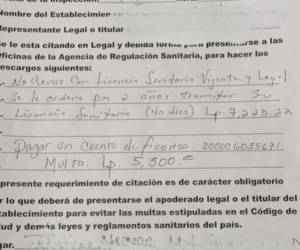 Nombre del Establecimien
Representante Legal o titular
le le esta citando en Legal y debida forma para presentarse a las
Oficinas de la Agencia de Regulación Sanitaria, para hacer los
escargos siguientes:
No Cuenta Con Licencia Sanitaria Vigente y Legal
Se le ordena por 2 años tramitar Su
Licencia Sanitaria (40 dias) Lp. 7,223.22
Pagar en Cuenta de ficohsa 200006055671
Multa: Lp. 5,500.=
presente requerimiento de citación es de carácter obligatorio
r lo que deberá de presentarse el apoderado legal o el titular del
tablecimiento para evitar las multas estipuladas en el Código de
lud y demás leyes y reglamentos sanitarios del país.
gar.